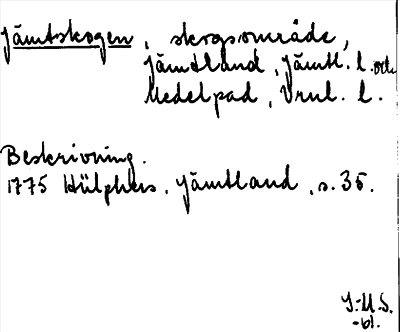 Jämtskogen, skogsområde,
Jämtland, Jämtl. l. och
Medelpad, Vnrl. l.
Beskrivning.
1775 Hülphers, Jämtland, s. 35.
J:U.S.
-61.